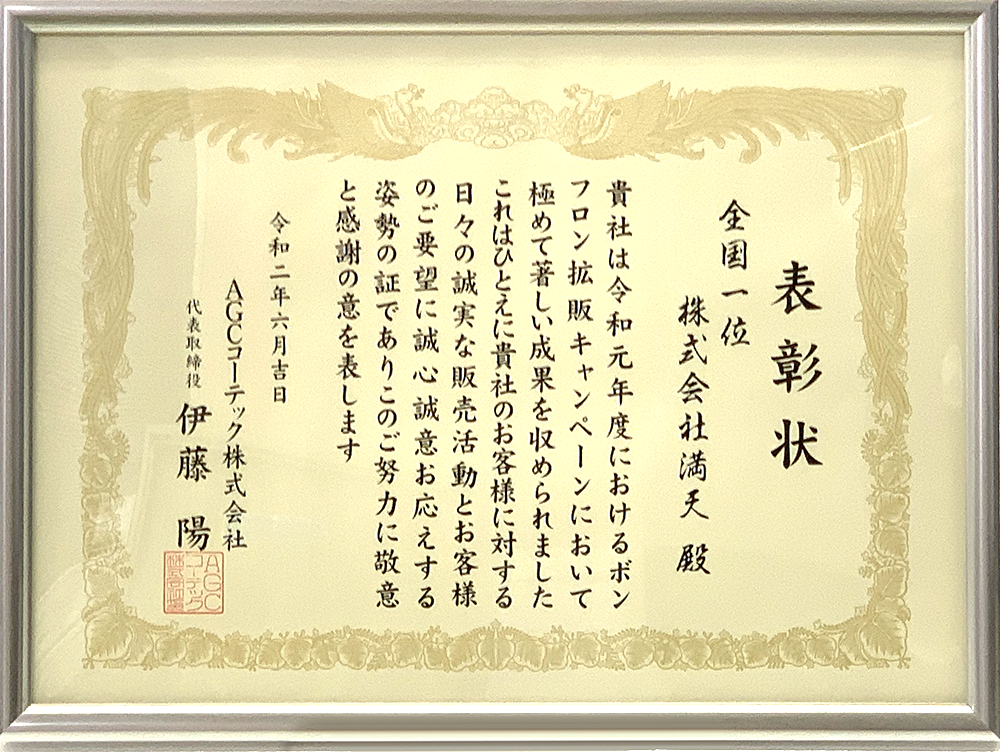 表彰状
全国一位
株式会社満天 殿
貴社は令和元年度におけるボン
フロン拡販キャンペーンにおいて
極めて著しい成果を収められました
これはひとえに貴社のお客様に対する
日々の誠実な販売活動とお客様
のご要望に誠心誠意お応えする
姿勢の証でありこのご努力に敬意
と感謝の意を表します
令和二年六月吉日
AGCコーテック株式会社
代表取締役 伊藤 陽
AGC
コーテック
株式会社